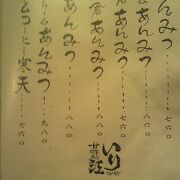 んみつ……七六〇
あんみつ……八八〇
あんみつ……七六〇
あんみつ……八八〇
リームあんみつ……九八〇
ムコーヒー寒天
いり江